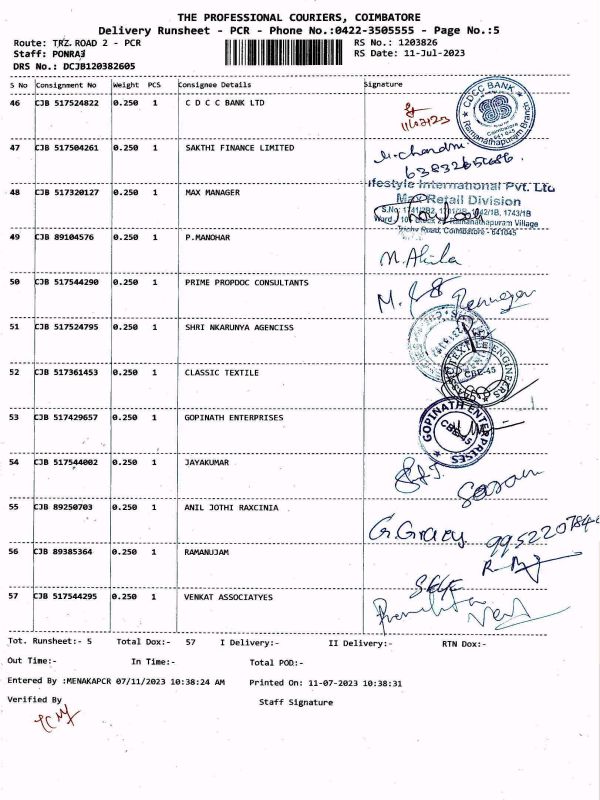 THE PROFESSIONAL COURIERS, COIMBATORE
Delivery Runsheet - PCR - Phone No.:0422-3505555 - Page No.:5
Route: TRZ ROAD 2 - PCR RS No.: 1203826
Staff: PONRAJ RS Date: 11-Jul-2023
DRS No.: DCJB120382605
S No Consignment No Weight PCS Consignee Details Signature
46 CJB 517524822 0.250 1 C D C C BANK LTD
CDCC BANK
Ramanathapuram Branch
Coimbatore
47 CJB 517504261 0.250 1 SAKTHI FINANCE LIMITED
M. Chandru
ifestyle International Pvt. Ltd
Max Retail Division
48 CJB 517320127 0.250 1 MAX MANAGER
Ramanathapuram Village
Trichy Road, Coimbatore - 641045
49 CJB 89104576 0.250 1 P.MANOHAR
50 CJB 517544290 0.250 1 PRIME PROPDOC CONSULTANTS
51 CJB 517524795 0.250 1 SHRI NKARUNYA AGENCISS
52 CJB 517361453 0.250 1 CLASSIC TEXTILE
TEXTILE ENGINEERS
CBE-45
53 CJB 517429657 0.250 1 GOPINATH ENTERPRISES
GOPINATH ENTERPRISES
CBE-45
54 CJB 517544002 0.250 1 JAYAKUMAR
55 CJB 89250703 0.250 1 ANIL JOTHI RAXCINIA
G. Gracy
56 CJB 89385364 0.250 1 RAMANUJAM
57 CJB 517544295 0.250 1 VENKAT ASSOCIATYES
Tot. Runsheet:- 5 Total Dox:- 57 I Delivery:- II Delivery:- RTN Dox:-
Out Time:- In Time:- Total POD:-
Entered By :MENAKAPCR 07/11/2023 10:38:24 AM Printed On: 11-07-2023 10:38:31
Verified By Staff Signature